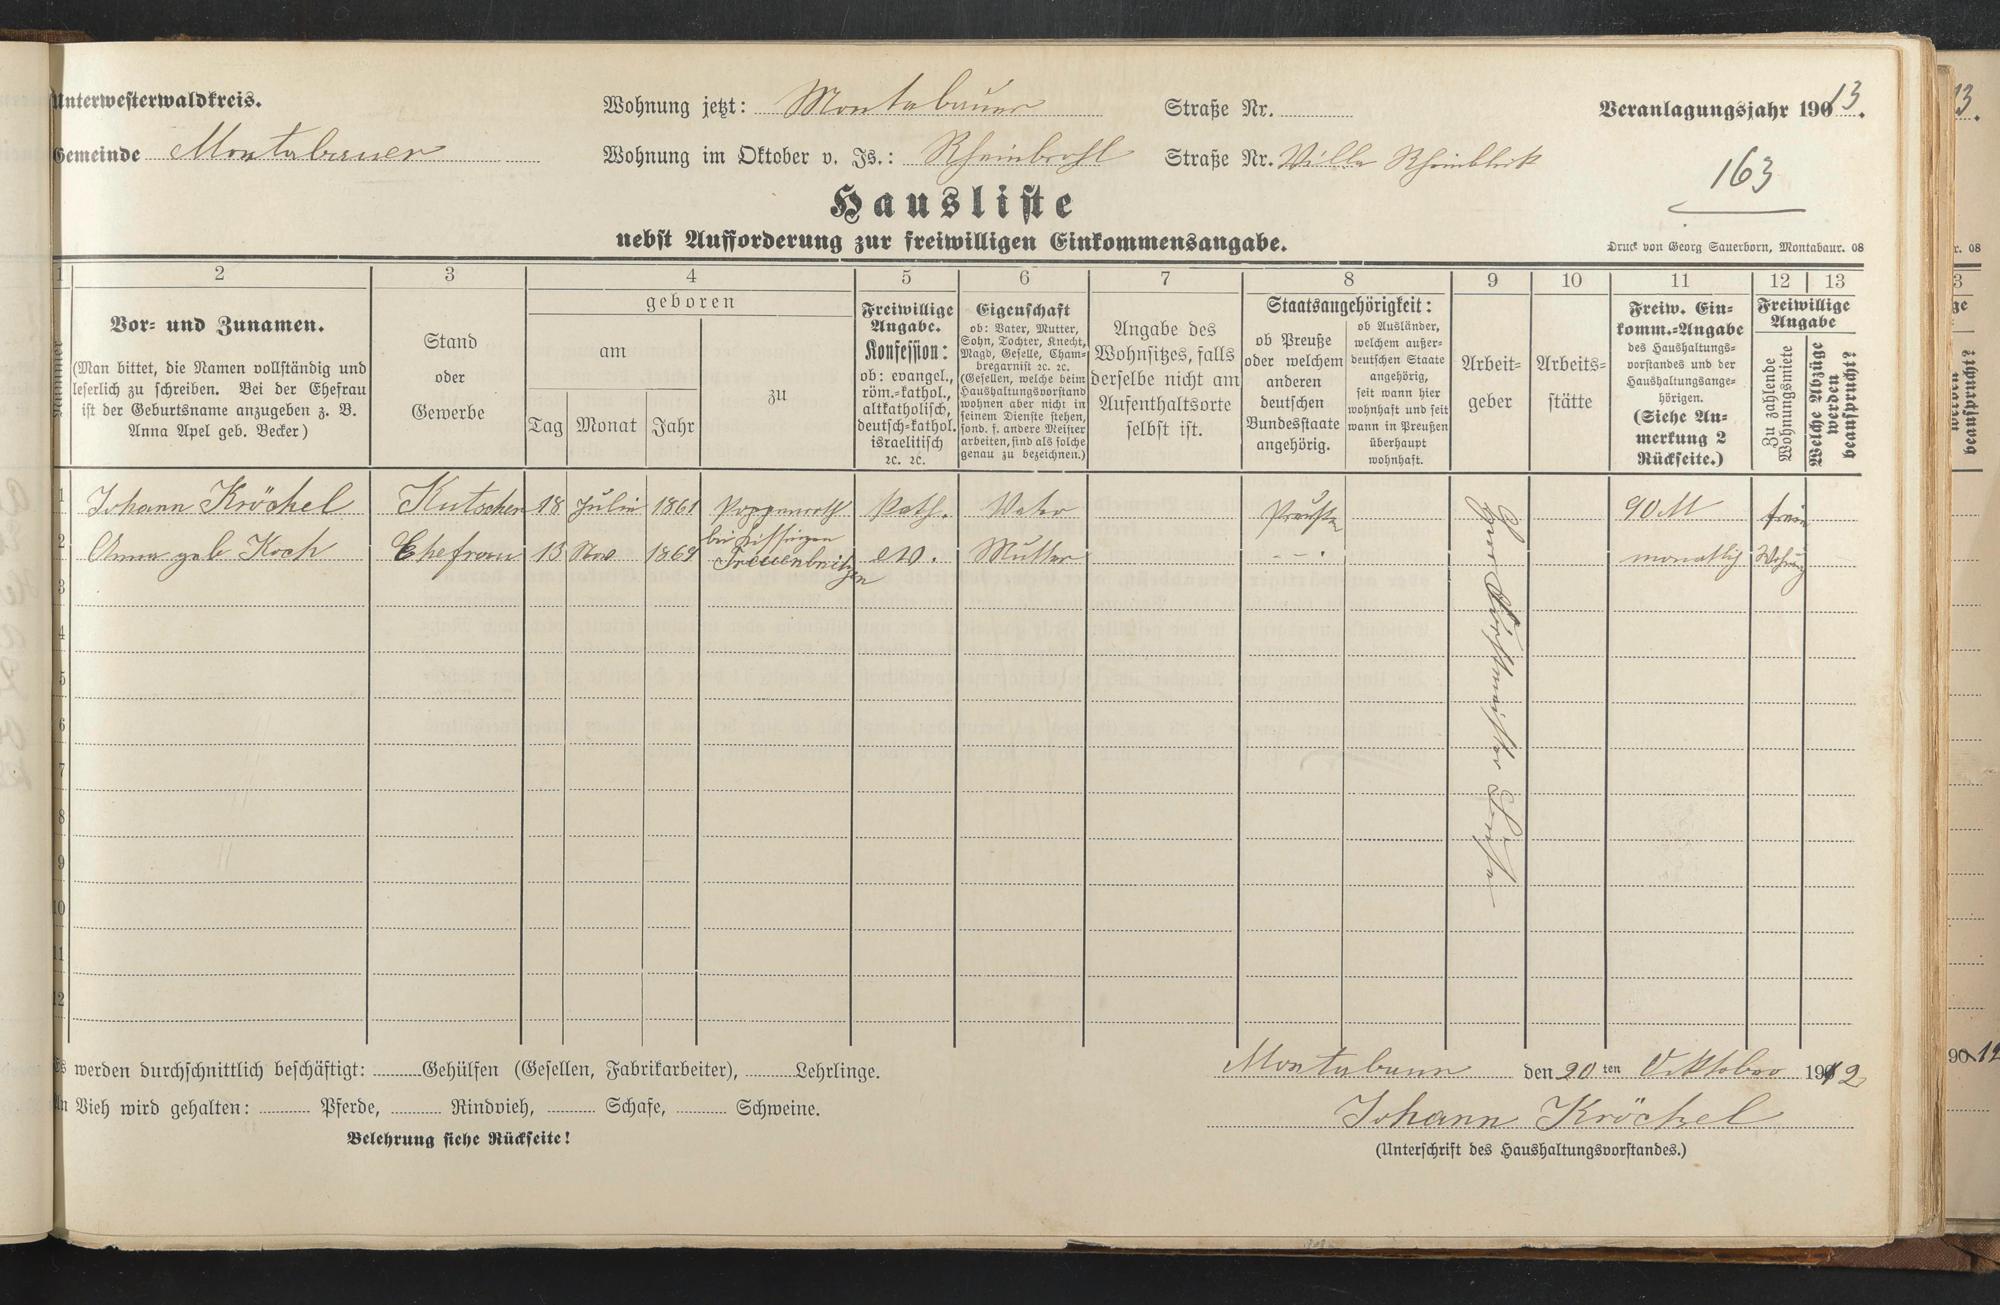 Unterwesterwaldkreis.
Wohnung jetzt: Montabaur
Straße Nr.
Veranlagungsjahr 1913.
Gemeinde Montabauer
Wohnung im Oktober v. Js.: Rheinbrohl
Straße Nr. Villa Rheinblick
163
Hausliste
nebst Aufforderung zur freiwilligen Einkommensangabe.
Druck von Georg Sauerborn, Montabaur. 08
1 2 3 4 5 6 7 8 9 10 11 12 13
Nummer
Vor- und Zunamen.
(Man bittet, die Namen vollständig und
leserlich zu schreiben. Bei der Ehefrau
ist der Geburtsname anzugeben z. B.
Anna Apel geb. Becker)
Stand
oder
Gewerbe
geboren
am
Tag Monat Jahr
zu
Freiwillige
Angabe.
Konfession:
ob: evangel.,
röm.-kathol.,
altkatholisch,
deutsch-kathol.
israelitisch
2c. 2c.
Eigenschaft
ob: Vater, Mutter,
Sohn, Tochter, Knecht,
Magd, Geselle, Cham-
bregarnist 2c. 2c.
(Gesellen, welche beim
Haushaltungsvorstand
wohnen aber nicht in
seinem Dienste stehen,
sond. f. andere Meister
arbeiten, sind als solche
genau zu bezeichnen.)
Angabe des
Wohnsitzes, falls
derselbe nicht am
Aufenthaltsorte
selbst ist.
Staatsangehörigkeit:
ob Preuße
oder welchem
anderen
deutschen
Bundesstaate
angehörig.
ob Ausländer,
welchem außer-
deutschen Staate
angehörig,
seit wann hier
wohnhaft und seit
wann in Preußen
überhaupt
wohnhaft.
Arbeit-
geber
Arbeits-
stätte
Freiw. Ein-
komm.-Angabe
des Haushaltungs-
vorstandes und der
Haushaltungsange-
hörigen.
(Siehe An-
merkung 2
Rückseite.)
Freiwillige
Angabe
Zu zahlende
Wohnungsmiete
Welche Abzüge
werden
beansprucht?
1 Johann Kröckel Kutscher 18 Julie 1861 Poppenroth Kath. Vater Preuße 90 M freie
bei Kissingen
2 Anna geb Koch Ehefrau 13 Nov 1869 Treuenbritzen ev. Mutter - - . monatlich Wohnung
3
4
5
6
7
8
9
10
11
12
Es werden durchschnittlich beschäftigt: Gehülfen (Gesellen, Fabrikarbeiter), Lehrlinge.
An Vieh wird gehalten: Pferde, Rindvieh, Schafe, Schweine.
Belehrung siehe Rückseite!
Montabaur den 20ten Oktober 1912
Johann Kröckel
(Unterschrift des Haushaltungsvorstandes.)